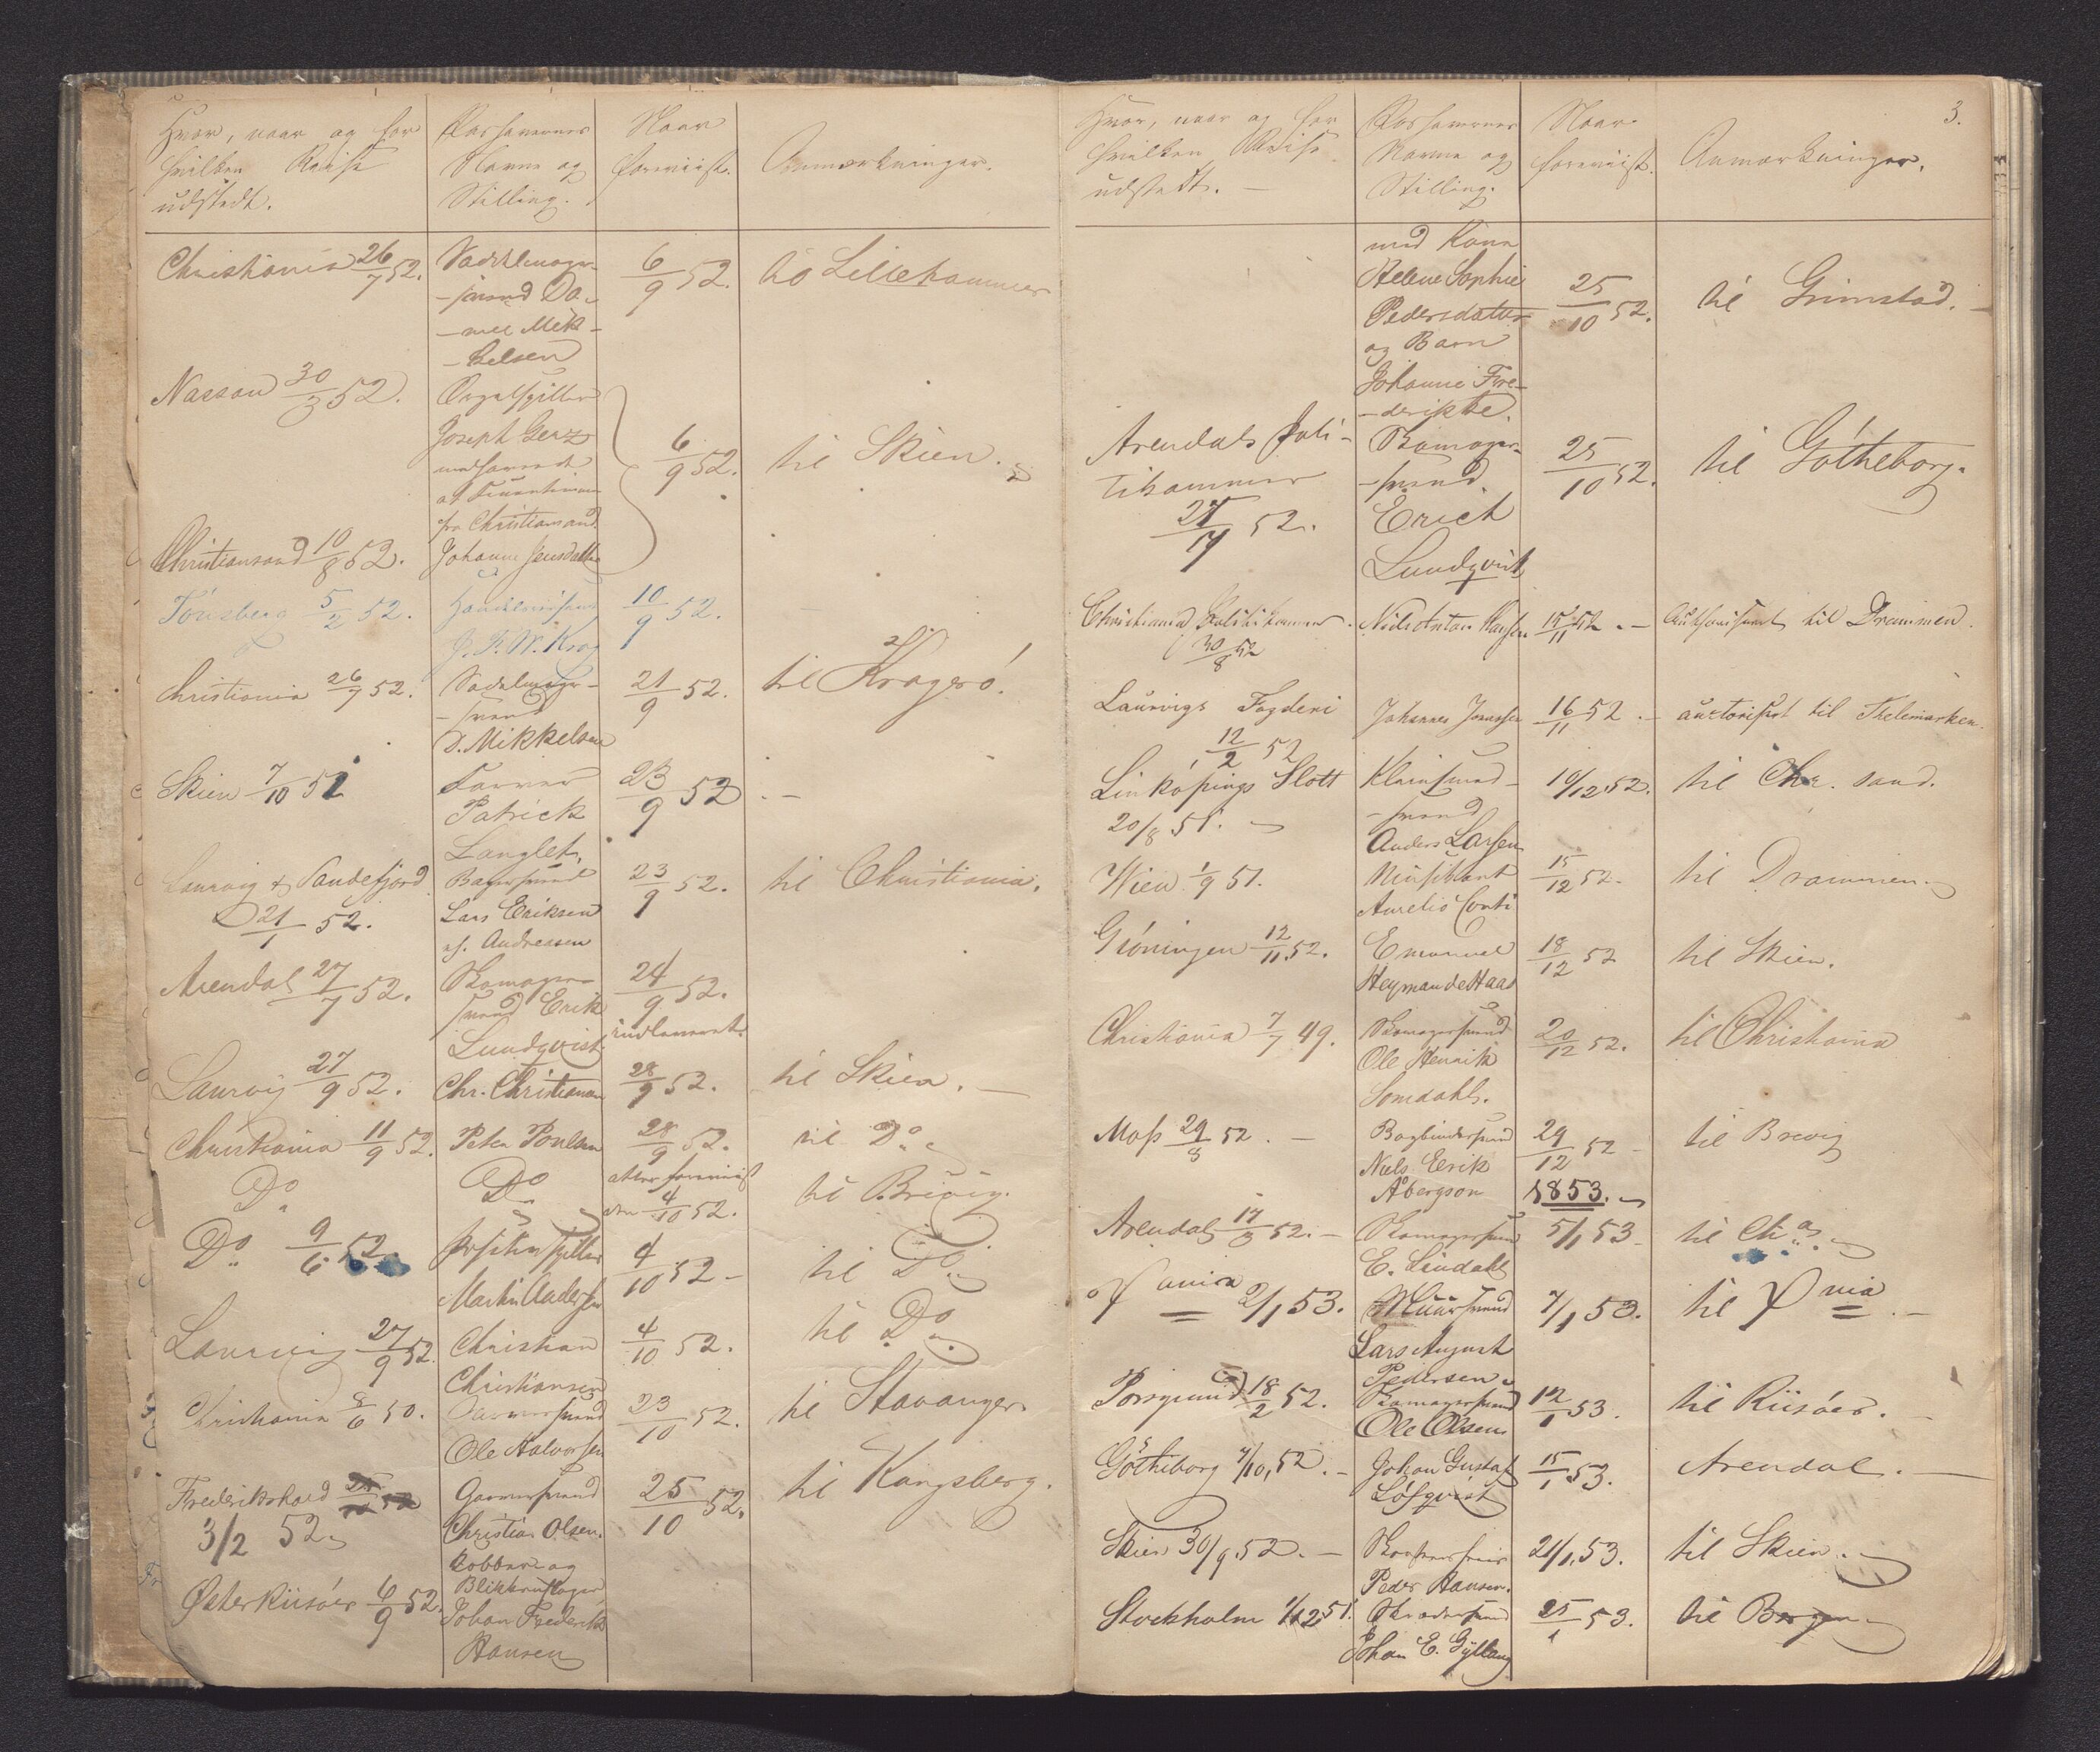 Hvor, naar og for
hvilken Reise
udstedt.
Passernes
Navne og
Stilling.
Naar
foreviist.
Anmærkninger.
Christiania 26/7 52.
Sadelmager-
-svend Da-
-niel Mik-
-kelsen
6/9 52.
til Lillehammer
Nassau 30/3 52.
Orgelspiller
Joseph Gerz
fra Christiansand
6/9 52.
til Skien.
Christiansand 10/8 52.
Johanne Jensdatter
Tönsberg 5/2 52.
J. P. W. Krog
10/9 52.
Christiania 26/7 52.
Sadelmager-
-svend
D. Mikkelsen
21/9 52.
til Kragerö.
Skien 7/10 51
Farver
Patrick
Langlet.
23/9 52
Laurvig & Sandefjord
21/1 52.
Bagersvend
Lars Eriksen
Andreasen
23/9 52.
til Christiania.
Arendal 27/7 52.
Skomager-
svend Erik
Lundqvist
24/9 52.
Laurvig 27/9 52.
Chr. Christiansen
28/9 52.
til Skien.
Christiania 11/9 52.
Peter Poulsen
28/9 52.
til Do
Do
Do
atter foreviist
den 4/10 52.
til Brevig.
Do 9/6 52
Martin Andersen
4/10 52
til Do
Laurvig 27/9 52.
Christian
Christiansen
4/10 52.
til Do
Christiania 8/6 50.
Garversvend
Ole Halvorsen
23/10 52.
til Stavanger
Frederikshald
3/2 52
Garversvend
Christian Olsen.
25/10 52.
til Kongsberg.
Øster Riisöer 6/9 52.
Kobber og
Blikkenslager
Johan Frederik
Hansen
3.
Hvor, naar og for
hvilken Reise
udstedt.
Passernes
Navne og
Stilling.
Naar
foreviist.
Anmærkninger.
med Kone
Helene Sophie
Pedersdatter
og Barn
Johanne Fre-
-derikke.
25/10 52.
til Grimstad.
Arendals Poli-
tikammer
27/7 52.
Skomager-
-svend
Erich
Lundqvist
25/10 52.
til Götheborg.
Christiania Politikammer.
30/8 52
Niels Anton Hansen
15/11 52.
Authoriseret til Drammen.
Laurvigs Fogderi
12/2 52
Johannes Jonassen
16/11 52
auctoriseret til Thelemarken.
Linköpings Slott
20/8 51.
-svend
Anders Larsen
10/12 52.
til Chr. sand.
Wien 1/9 51.
Musikant
Aurelio Conti
15/12 52.
til Drammen
Gröningen 12/11 52.
Emanuel
Heyman de Haas
18/12 52
til Skien.
Christiania 7/7 49.
Skomagersvend
Ole Henrik
Somdahl.
20/12 52.
til Christiania
Moss 29/8 52.
Bogbindersvend
Niels Erik
Åbergson
29/12 52
til Brevig
1853.
Arendal 17/8 52.
Skomagersvend
E. Lindahl
5/1 53
til Cha
Xania 2/1 53.
Muursvend
Lars August
Pedersen
7/1 53.
til Xnia
Porsgrund 18/2 52.
Skomagersvend
Ole Olsen
12/1 53.
til Riisöer.
Götheborg 7/10 52.
Johan Gustaf
Löfqvist
15/1 53.
Arendal.
Skien 30/9 52.
Peder Hansen.
21/1 53.
til Skien.
Stockholm 1/12 51.
Skradersvend
Johan E. Gyllang
25/1 53.
til Bergen